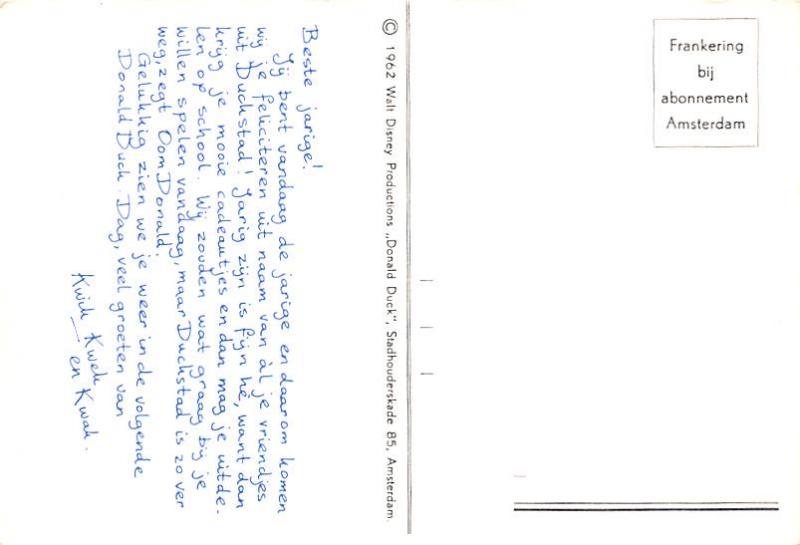 Beste jarige!
Jij bent vandaag de jarige en daarom komen
wij je feliciteren uit naam van àl je vriendjes
uit Duckstad! Jarig zijn is fijn hè, want dan
krijg je mooie cadeautjes en dan mag je uitde-
len op school. Wij zouden wat graag bij je
willen spelen vandaag, maar Duckstad is zo ver
weg, zegt Oom Donald.
Gelukkig zien we je weer in de volgende
Donald Duck. Dag, veel groeten van
Kwik Kwek
en Kwak.
© 1962 Walt Disney Productions „Donald Duck”, Stadhouderskade 85, Amsterdam.
Frankering
bij
abonnement
Amsterdam